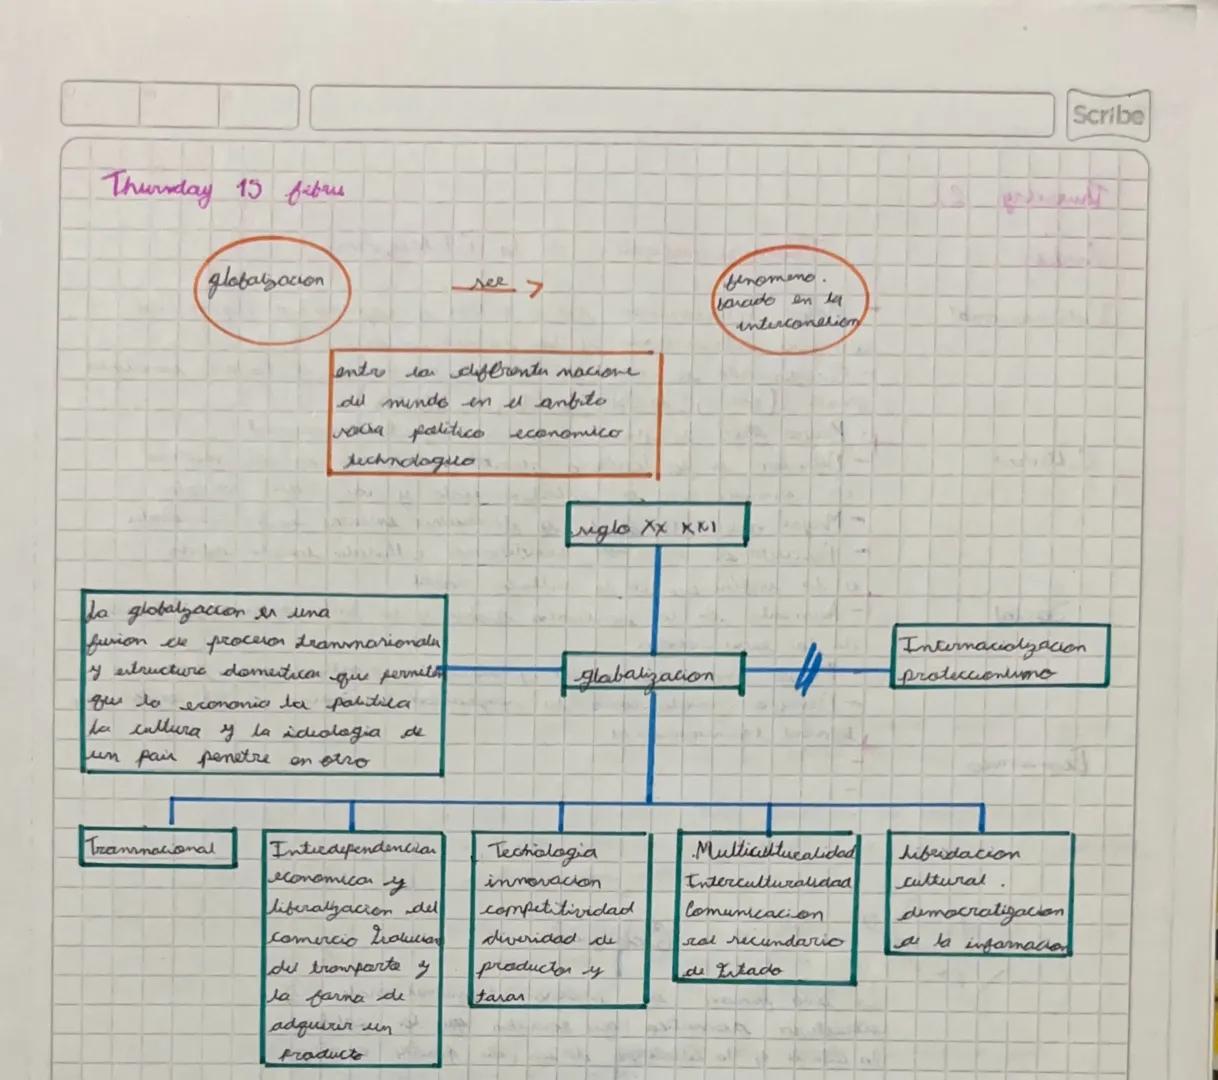 Scribe
Thursday 15 febru
globalizacion
ser
fenomeno.
basado en la
interconexion
entre las diffrentes nacione
del mundo en el ambito
politico economico
technologico
siglo XX XXI
La globalizacion es una
fusion de procesos trannacionales
y estructura domesticas que permiten
que la economia la politica
la cultura y la ideologia de
un pais penetre en otro
globalizacion
Internacionlizacion
proteccionismo
Trannacional
Interdependencias
economicas y
liberalizacion del
comercio Evolucion
del transporte y
la forma de
adquirir un
producto
Technologia
innovacion
competitividad
diversidad de
productos y
Multiculturalidad
Interculturalidad
Comunicacion
rol secundario
de Estado
hibridacion
cultural.
democratizacion
de la informacion